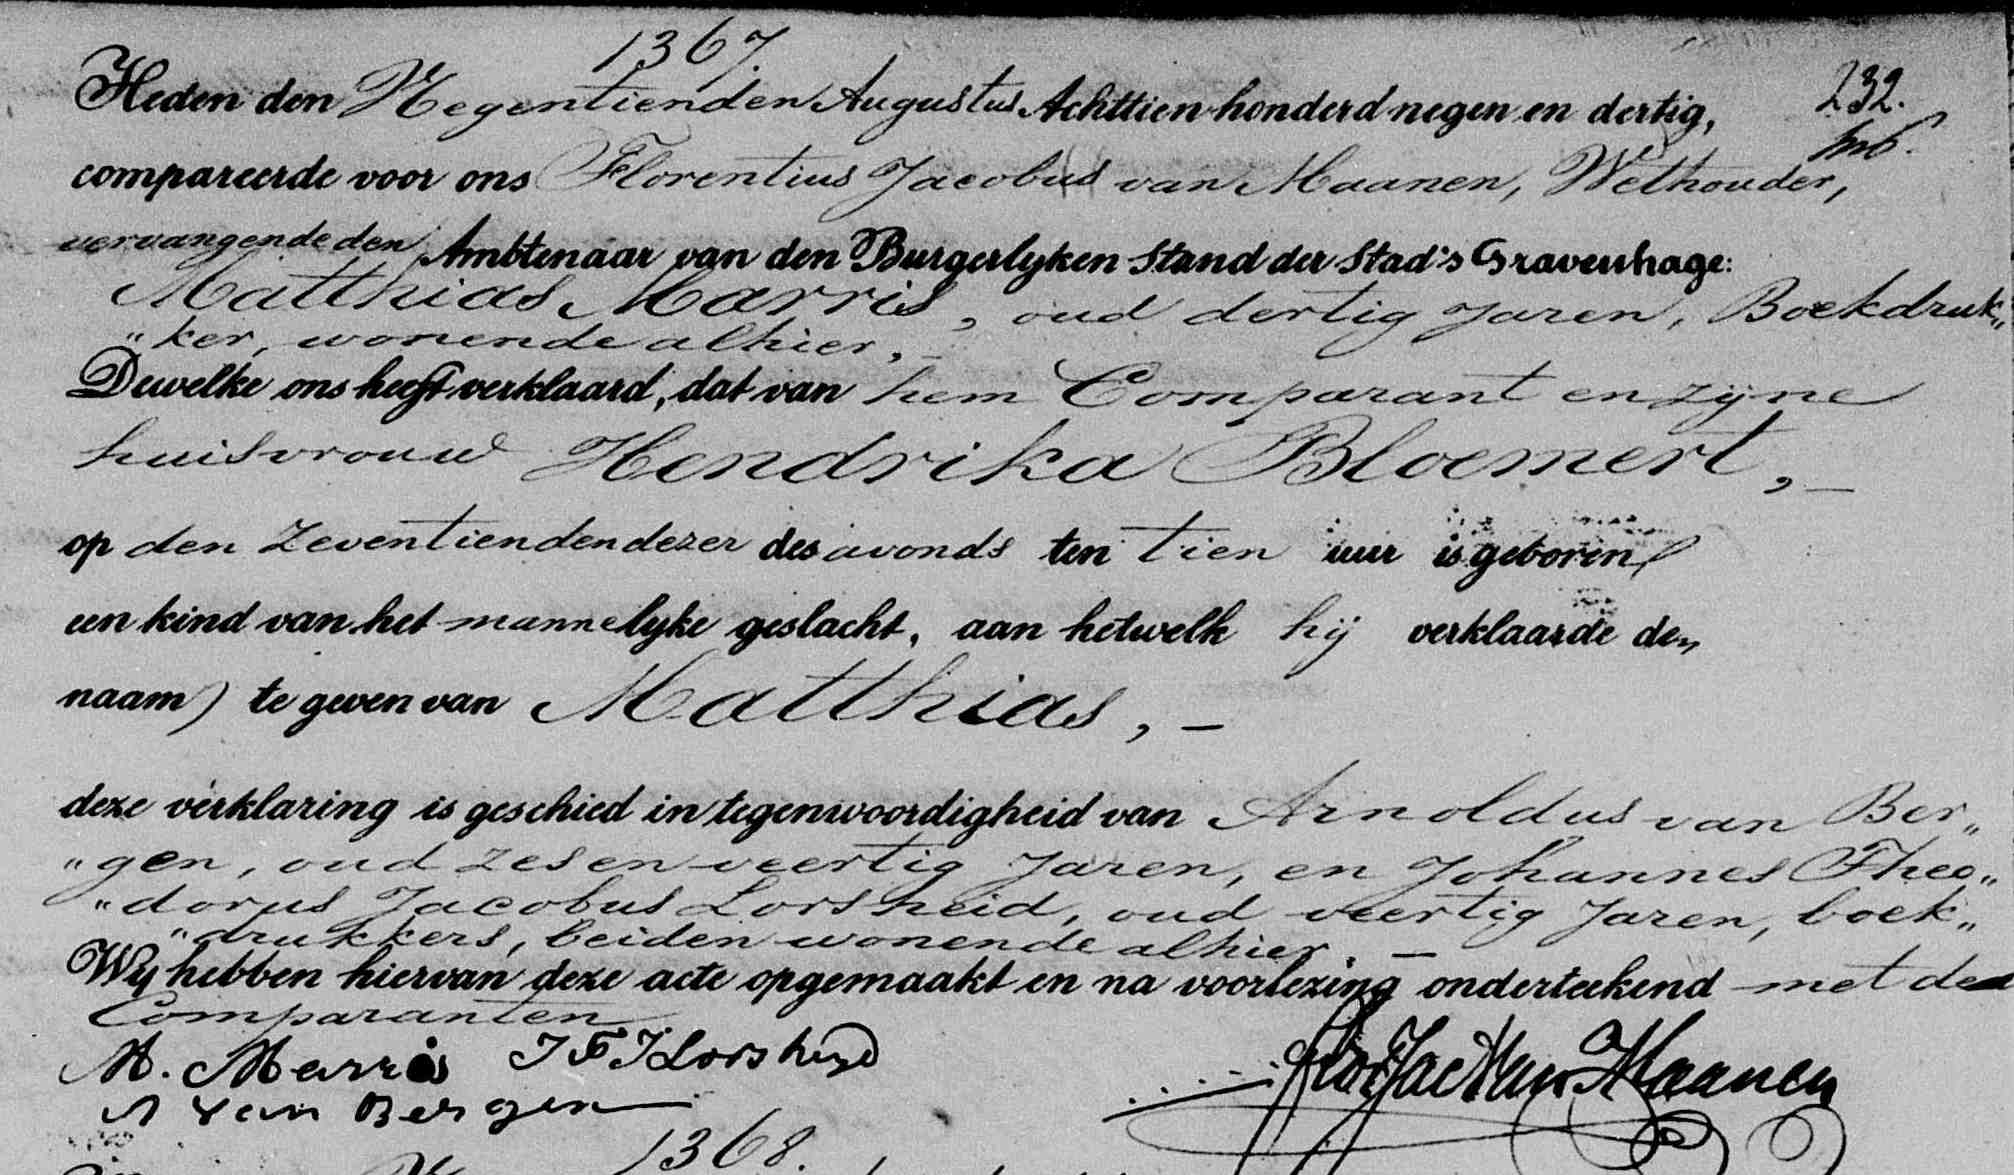 1367.
Heden den Negentienden Augustus Achttien honderd negen en dertig,
232.
compareerde voor ons Florentius Jacobus van Maanen, Wethouder,
vervangende den Ambtenaar van den Burgerlyken Stand der Stad 's Gravenhage:
Matthias Marris, oud dertig Jaren, Boekdruk„
„ker, wonende alhier, –
Dewelke ons heeft verklaard, dat van hem Comparant en zijne
huisvrouw Hendrika Bloemert, –
op den Zeventienden dezer des avonds ten tien uur is geboren
een kind van het mannelyke geslacht, aan hetwelk hij verklaarde den
naam te geven van Matthias, –
deze verklaring is geschied in tegenwoordigheid van Arnoldus van Ber„
„gen, oud zes en veertig Jaren, en Johannes Theo„
„dorus Jacobus Lorsheid, oud veertig Jaren, boek„
„drukkers, beiden wonende alhier. –
Wy hebben hiervan deze acte opgemaakt en na voorlezing onderteekend met de
Comparanten
M. Marris J T J Lorsheyd
A van Bergen
Flor Jac van Maanen
1368.